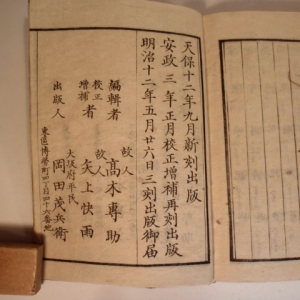 天保十二年九月新刻出版
安政三年正月校正增補再刻出版
明治十二年五月廿六日三刻出版御届
編輯者 故人 高木專助
校正增補者 故人 矢上快雨
大阪府平民
出版人 岡田茂兵衛
東區博勞町四丁目四十六番地